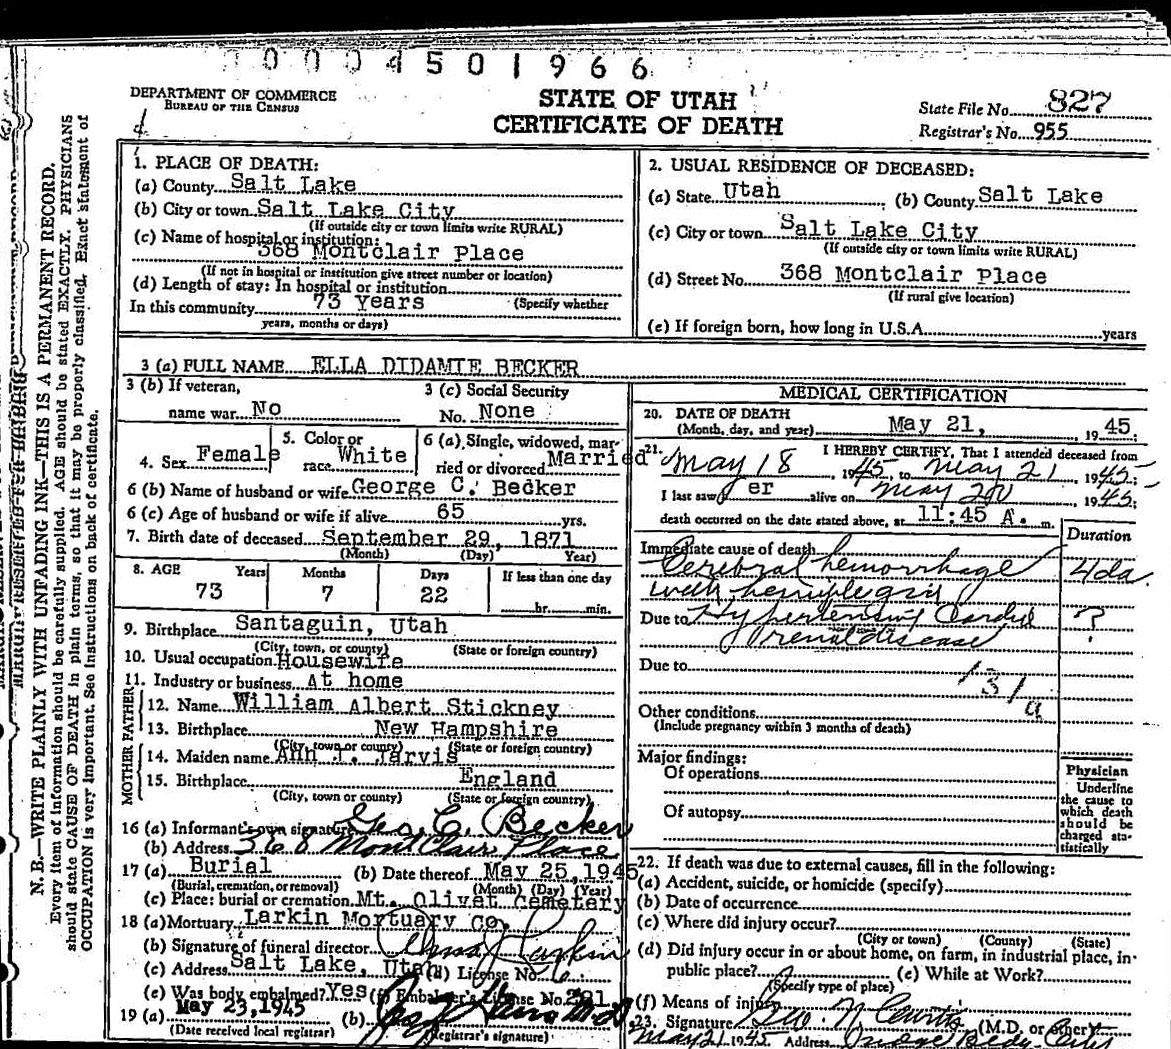 0004501966
DEPARTMENT OF COMMERCE
BUREAU OF THE CENSUS
STATE OF UTAH
CERTIFICATE OF DEATH
State File No. 827
Registrar's No. 955
N. B.—WRITE PLAINLY WITH UNFADING INK—THIS IS A PERMANENT RECORD.
Every item of information should be carefully supplied. AGE should be stated EXACTLY. PHYSICIANS
should state CAUSE OF DEATH in plain terms, so that it may be properly classified. Exact statement of
OCCUPATION is very important. See instructions on back of certificate.
1. PLACE OF DEATH:
(a) County Salt Lake
(b) City or town Salt Lake City
(If outside city or town limits write RURAL)
(c) Name of hospital or institution:
368 Montclair Place
(If not in hospital or institution give street number or location)
(d) Length of stay: In hospital or institution
In this community 73 Years (Specify whether
years, months or days)
2. USUAL RESIDENCE OF DECEASED:
(a) State Utah (b) County Salt Lake
(c) City or town Salt Lake City
(If outside city or town limits write RURAL)
(d) Street No. 368 Montclair Place
(If rural give location)
(e) If foreign born, how long in U.S.A. years
3 (a) FULL NAME ELLA DIDAMIE BECKER
3 (b) If veteran,
name war No
3 (c) Social Security
No. None
4. Sex Female
5. Color or
race White
6 (a) Single, widowed, mar-
ried or divorced Married
6 (b) Name of husband or wife George C. Becker
6 (c) Age of husband or wife if alive 65 yrs.
7. Birth date of deceased September 29, 1871
(Month) (Day) Year)
8. AGE Years Months Days If less than one day
73 7 22 hr. min.
9. Birthplace Santaguin, Utah
(City, town, or county) (State or foreign country)
10. Usual occupation Housewife
11. Industry or business At home
FATHER
12. Name William Albert Stickney
13. Birthplace New Hampshire
(City, town or county) (State or foreign country)
MOTHER
14. Maiden name Ann T. Jarvis
15. Birthplace England
(City, town or county) (State or foreign country)
16 (a) Informant's own signature Geo. C. Becker
(b) Address 368 MontClaire Place
17 (a) Burial (b) Date thereof May 25, 1945
(Burial, cremation, or removal) (Month) (Day) (Year)
(c) Place: burial or cremation Mt. Olivet Cemetery
18 (a) Mortuary Larkin Mortuary Co.
(b) Signature of funeral director
(c) Address Salt Lake, Utah (d) License No.
(e) Was body embalmed? Yes (f) Embalmer's License No.
19 (a) May 23, 1945 (b)
(Date received local registrar) (Registrar's signature)
MEDICAL CERTIFICATION
20. DATE OF DEATH
(Month, day, and year) May 21, 1945
21. I HEREBY CERTIFY, That I attended deceased from
May 18 1945, to May 21 1945;
I last saw er alive on May 20 1945;
death occurred on the date stated above, at 11:45 A. m.
Duration
Immediate cause of death
Cerebral hemorrhage 4 da.
with hemiplegia
Due to Hypertensive Cardio ?
renal disease
Due to
131
a
Other conditions
(Include pregnancy within 3 months of death)
Major findings:
Of operations
Of autopsy
Physician
Underline
the cause to
which death
should be
charged sta-
tistically
22. If death was due to external causes, fill in the following:
(a) Accident, suicide, or homicide (specify)
(b) Date of occurrence
(c) Where did injury occur?
(City or town) (County) (State)
(d) Did injury occur in or about home, on farm, in industrial place, in
public place? (e) While at Work?
(Specify type of place)
(f) Means of injury
23. Signature (M.D. or other)
May 21 1945 Address